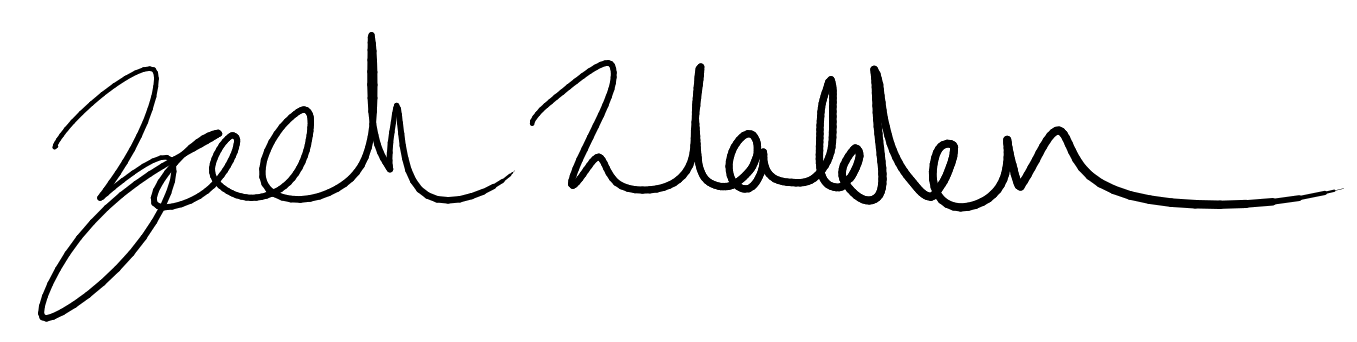 Zach Walden